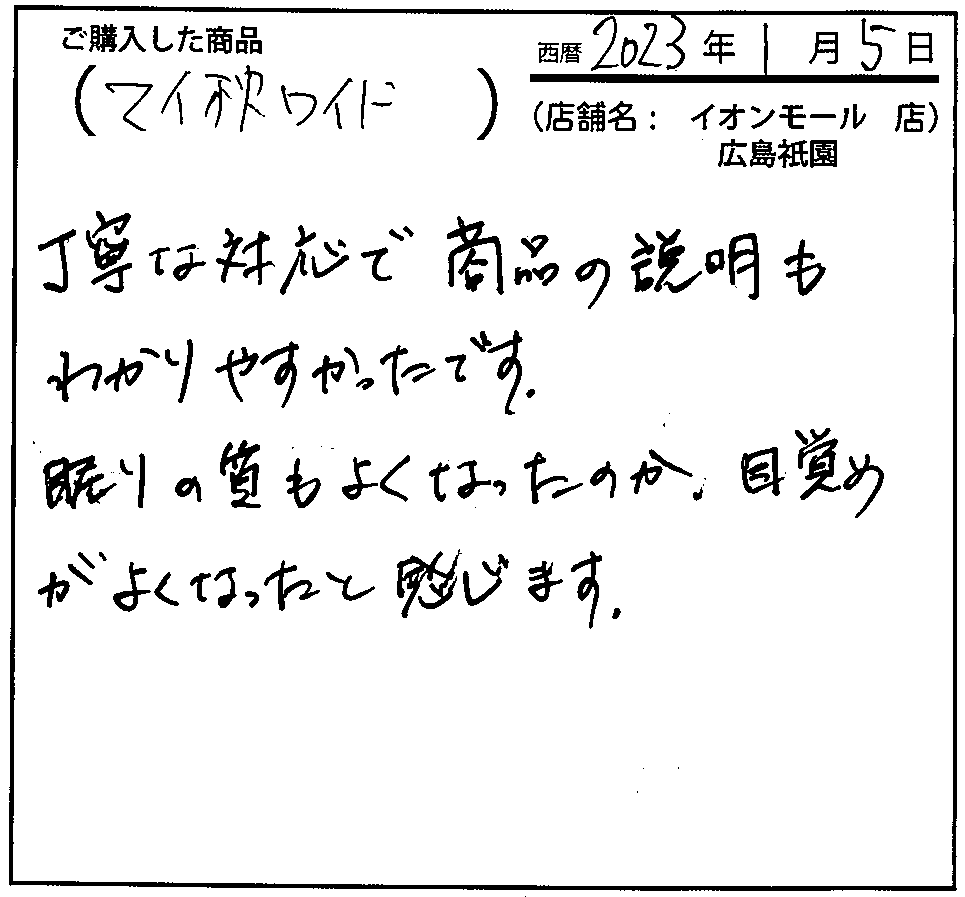 ご購入した商品
西暦 2023 年 1 月 5 日
(マイ枕ワイド)
(店舗名: イオンモール 店)
広島祇園
丁寧な対応で 商品の説明も
わかりやすかったです.
眠りの質もよくなったのか、目覚め
がよくなったと感じます.